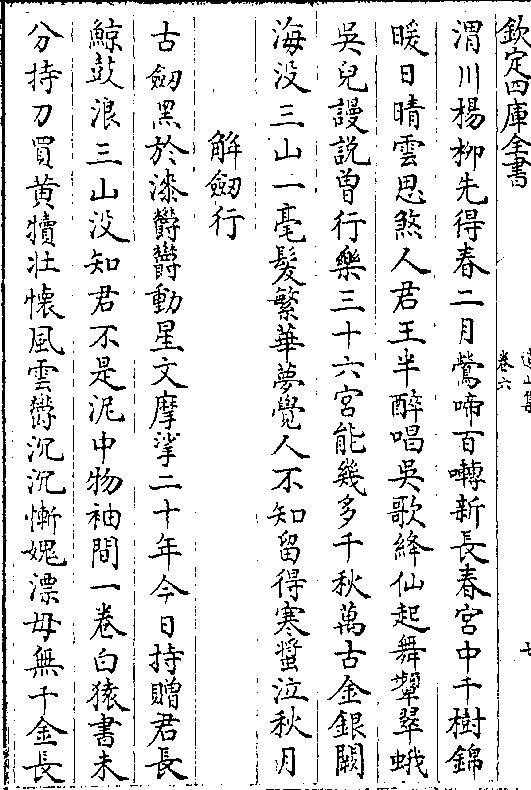 欽定四庫全書
卷六
渭川楊柳先得春二月鶯啼百囀新長春宮中千樹錦
暖日晴雲思煞人君王半醉唱吳歌絳仙起舞顰翠蛾
吳兒謾説曽行樂三十六宮能幾多千秋萬古金銀闕
海没三山一毫髪繁華夢覺人不知留得寒螿泣秋月
解劔行
古劔黑於漆欝欝動星文摩挲二十年今日持贈君長
鯨鼓浪三山没知君不是泥中物袖間一卷白猿書未
分持刀買黄犢壯懷風雲欝沉沉慚媿漂母無千金長